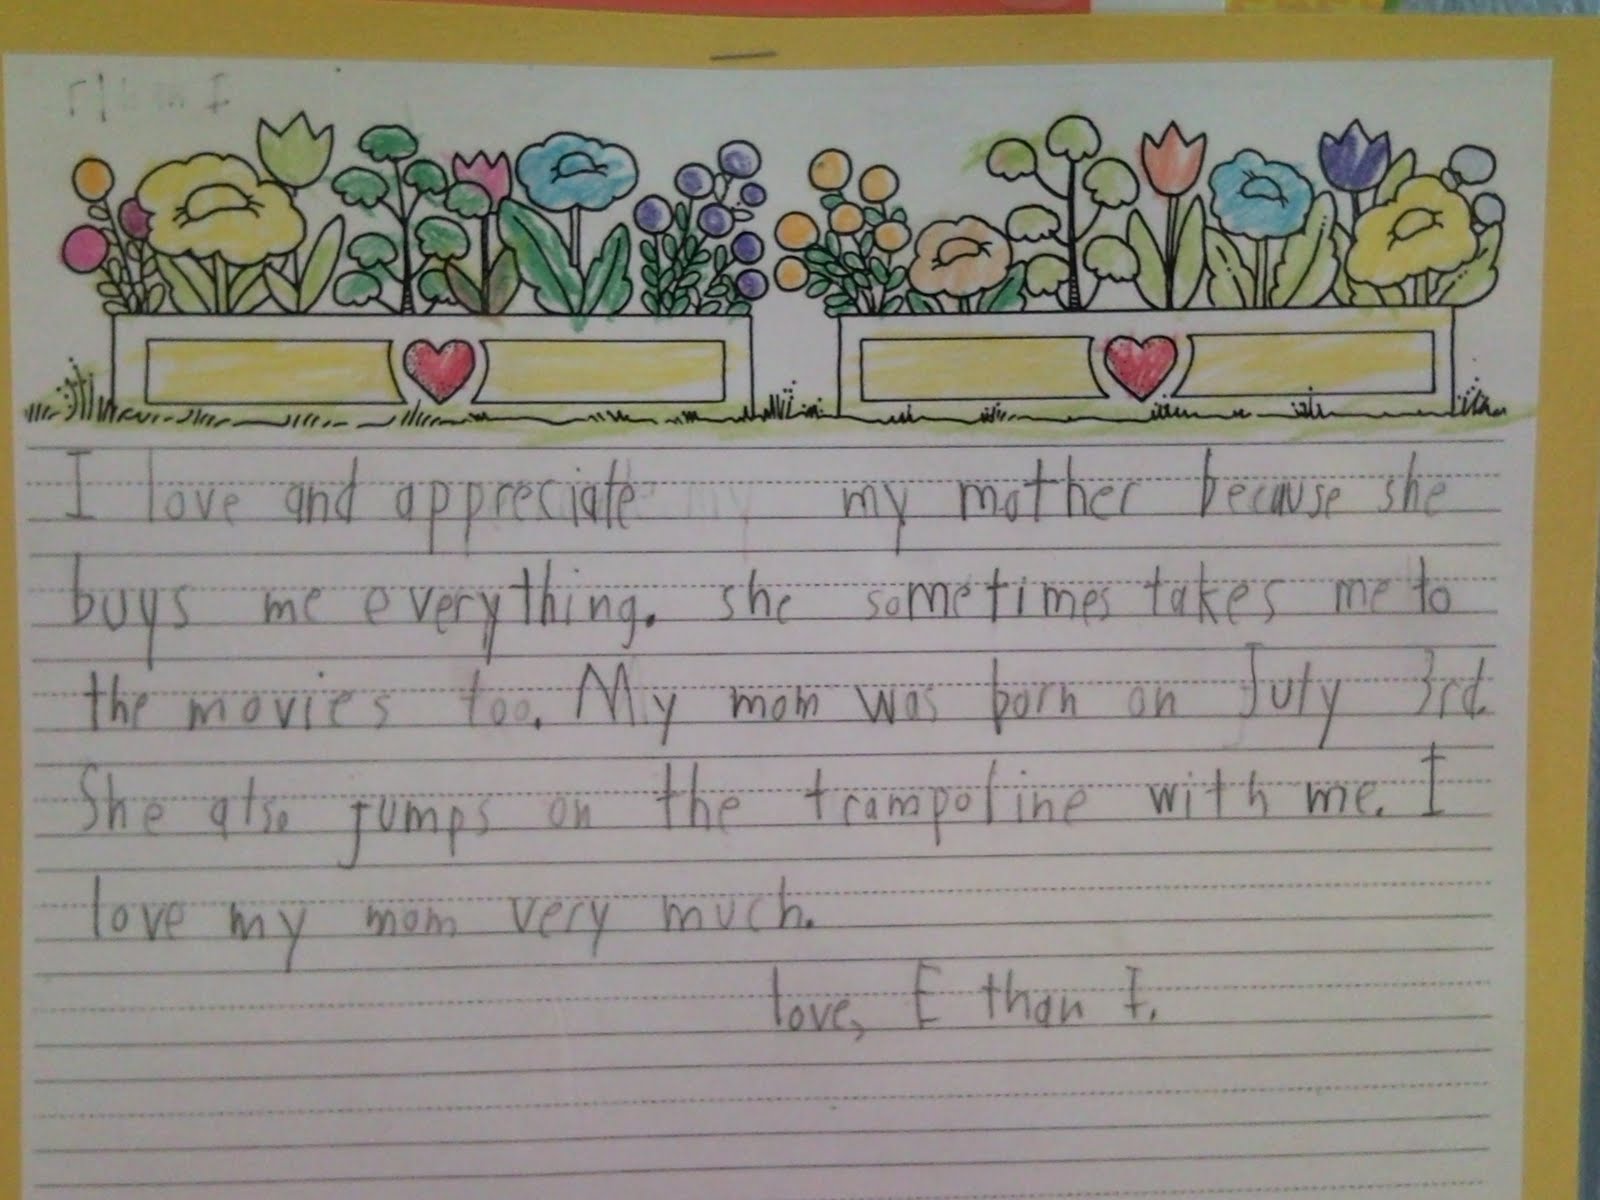 I love and appreciate my mother because she
buys me everything. she sometimes takes me to
the movies too. My mom was born on July 3rd.
She also jumps on the trampoline with me. I
love my mom very much.
love, Ethan I.